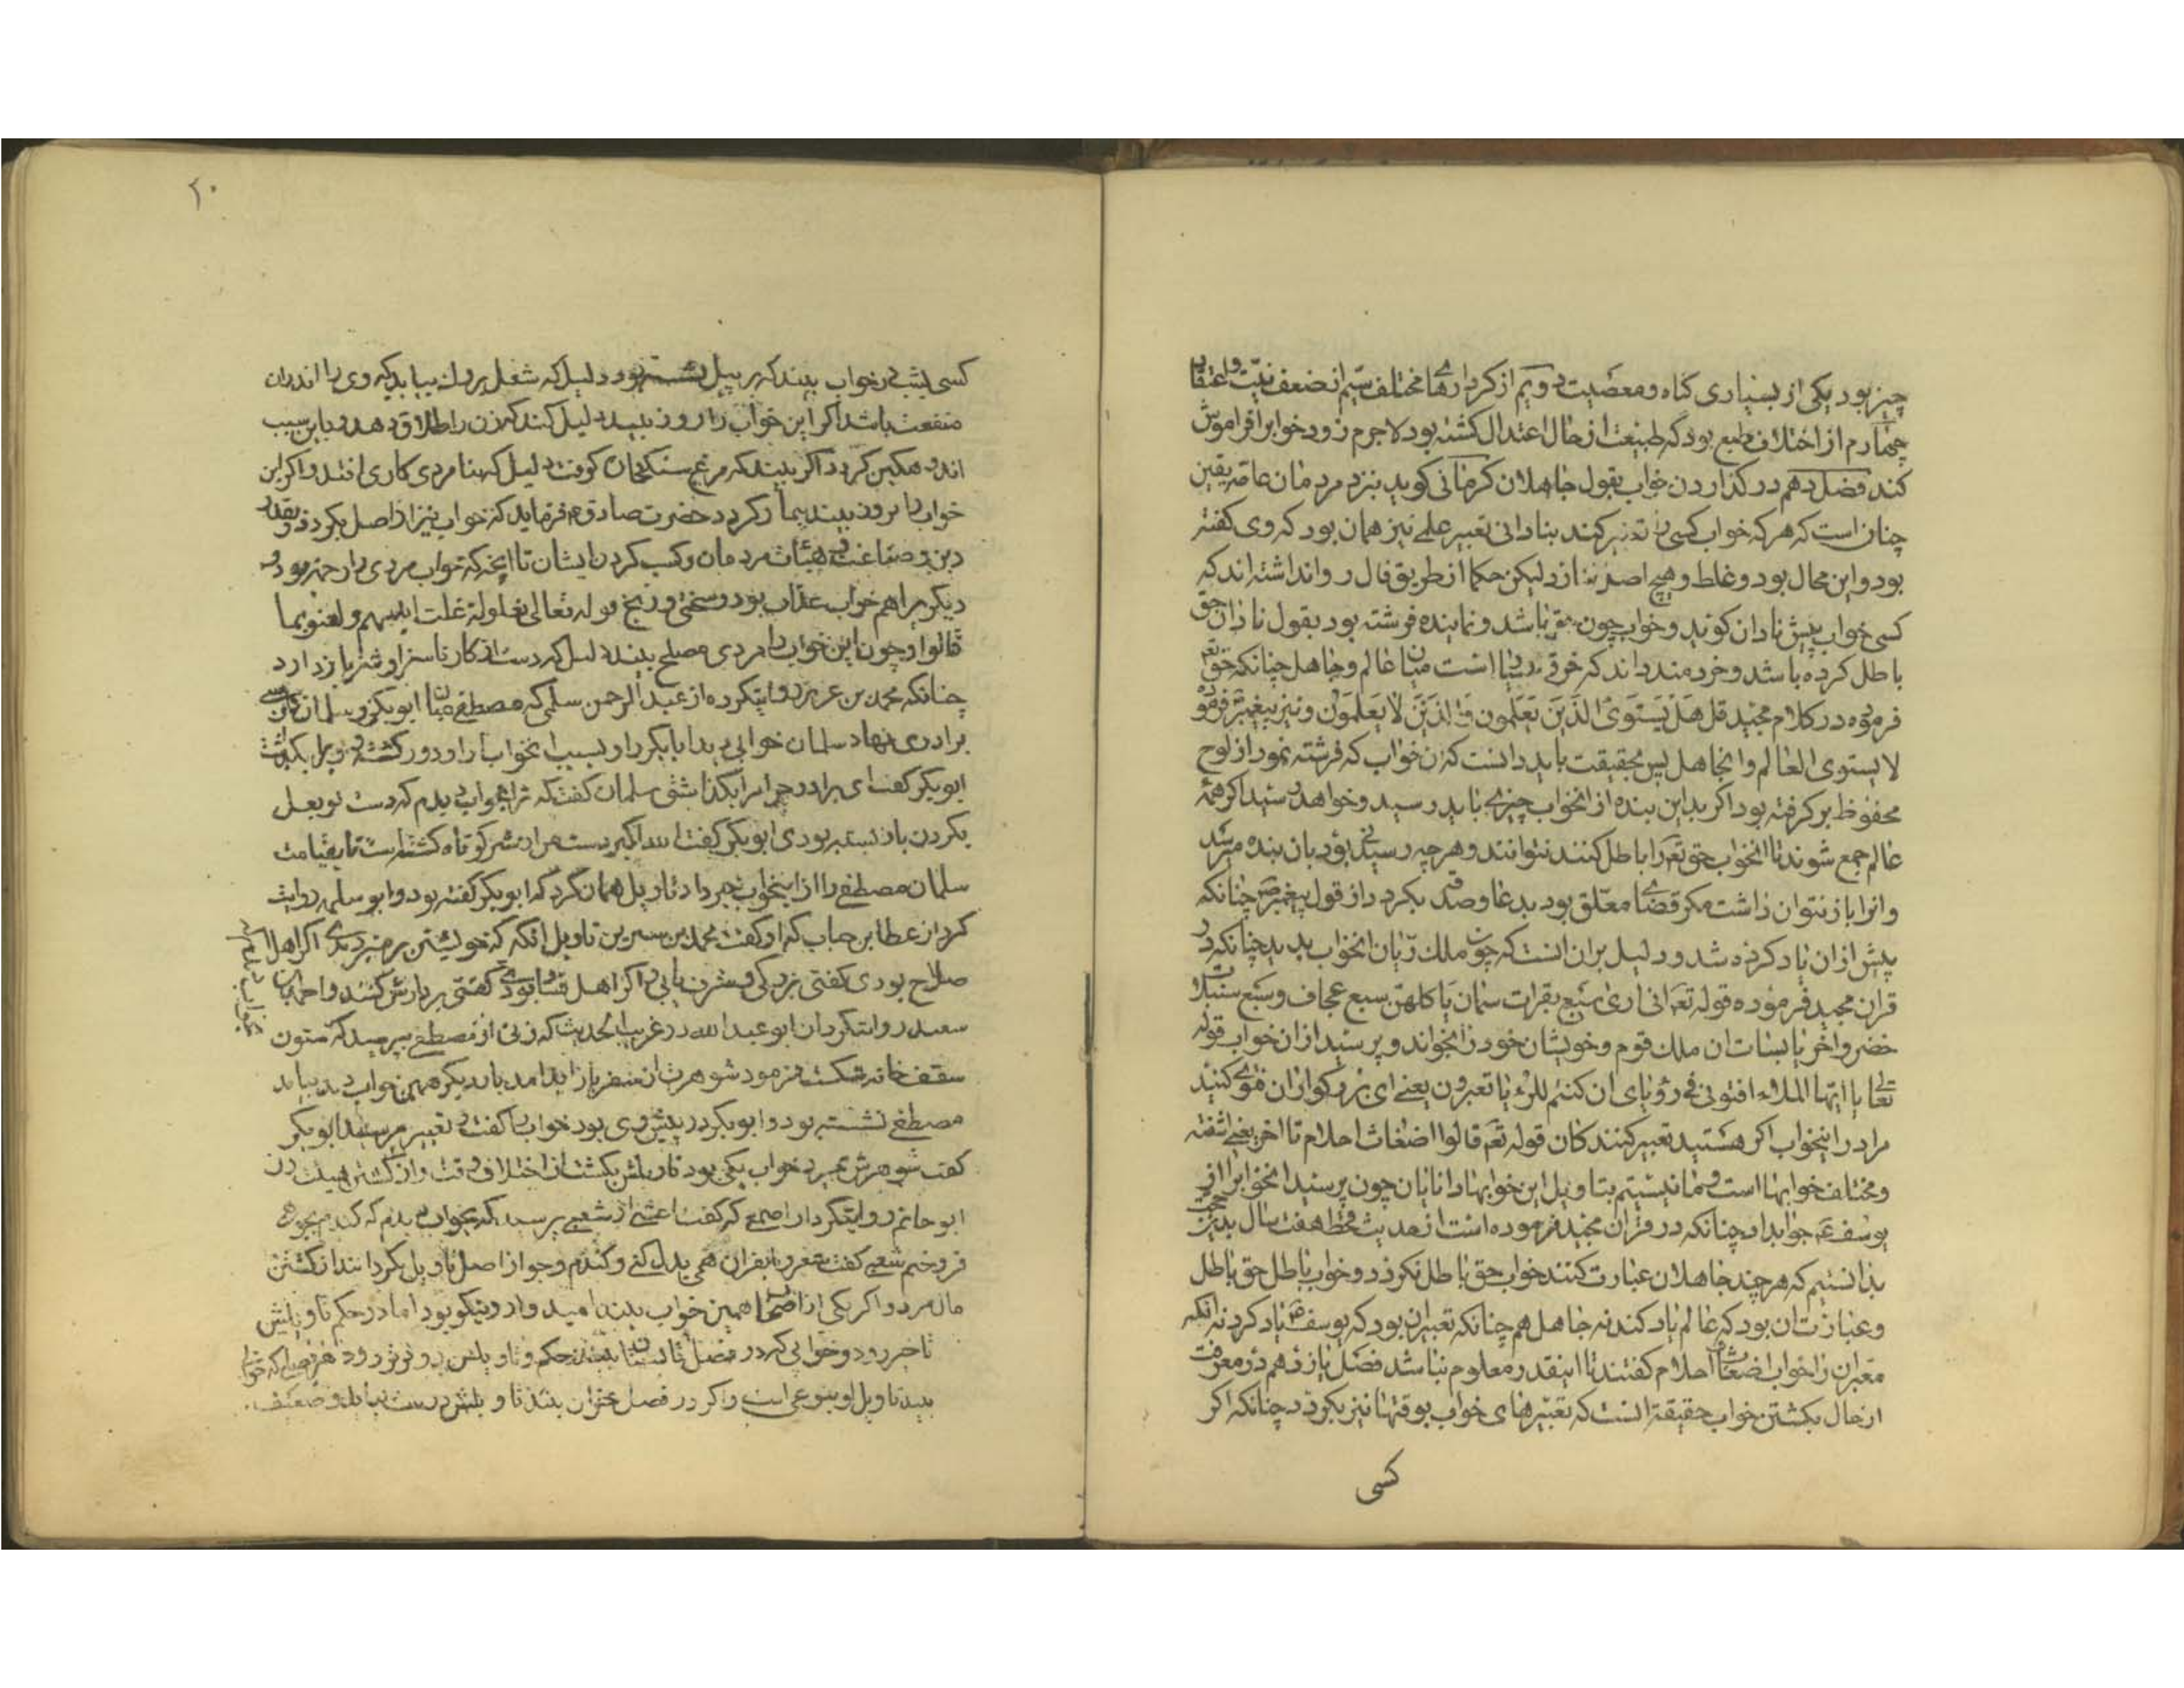 چیز بود یکی از بسیاری کناه و معصیت دویم از کردارهای مختلف سیم از ضعف نیت و اعتقاد
چهارم از اختلاف طبع بود که طبیعت از حال اعتدال کشته بود لاجرم زود خواب را فراموش
کند فصل دهم در کذاردن خواب بقول جاهلان کرمانی کوید بنزد مردمان عامه یقین
چنان است که هر که خواب کسی را تعبیر کند بنادانی تعبیر علمی نیز همان بود که وی کفته
بود و این محال بود و غلط و هیچ اصل ندارد لیکن حکما از طریق فال روا نداشته اند که
کسی خواب پیش نادان کوید و خواب چون حق باشد و نماینده فرشته بود بقول نادان حق
باطل کرده باشد و خردمند داند که فرق بسیار است میان عالم و جاهل چنانکه حق تع
فرموده در کلام مجید قل هل یستوی الذین یعلمون و الذین لا یعلمون و نیز پیغمبر فرموده
لا یستوی العالم و الجاهل پس بحقیقت باید دانست که آن خواب که فرشته نمود از لوح
محفوظ بر کرفته بود اکر بد این بنده از انخواب چیزی باید رسید و خواهد رسید اکر همه
عالم جمع شوند تا انخواب حق تع را باطل کنند نتوانند و هر چه رسیدنی بود بان بنده میرسد
و انرا باز نتوان داشت مکر قضای معلق بود بدعا و صدقه بکردد از قول پیغمبر ص چنانکه
پیش از ان یاد کرده شد و دلیل بران انست که چون ملک ریان انخواب بدید چنانکه در
قران مجید فرموده قوله تع انی اری سبع بقرات سمان یاکلهن سبع عجاف و سبع سنبلات
خضر و اخر یابسات ان ملک قوم و خویشان خود را بخواند و پرسید از ان خواب قوله
تعالی یا ایها الملاء افتونی فی رؤیای ان کنتم للرؤیا تعبرون یعنی ای بزرکواران فتوی کنید
مرا در اینخواب اکر هستید تعبیر کنندکان قوله تع قالوا اضغاث احلام تا اخر یعنی اشفته
و مختلف خوابها است و ما نیستیم بتاویل این خوابها دانایان چون پرسید انخواب را از
یوسف ع جواب داد چنانکه در قران مجید فرموده است از حدیث قحط هفت سال بدین حجت
بدانستیم که هر چند جاهلان عبارت کنند خواب حق باطل نکردد و خواب باطل حق باطل
و عبارت ان بود که عالم یاد کند نه جاهل هم چنانکه تعبیر ان بود که یوسف ع یاد کرد نه انکه
معبران را خواب اضغاث احلام کفتند تا اینقدر معلوم باشد فصل یازدهم در معرفت
از حال بکشتن خواب حقیقة انست که تعبیرهای خواب بوقتها نیز بکردد چنانکه اکر
کسی
۲۰
کسی بشب در خواب بیند که بر پیل نشسته بود دلیل که شغلی بزرک بیابد که وی را اندران
منفعت باشد اکر این خواب را روز بیند دلیل کند که زن را طلاق دهد و باین سبب
اندوهکین کردد اکر بیند که مرغ سنکخان کرفت دلیل که بنا مردی کاری افتد و اکر این
خواب را بروز بیند بیمار کردد حضرت صادق ع فرماید که خواب نیز از اصل بکردد و بقدر
دین و صناعت و هیئات مردمان و کسب کردن ایشان تا انچه که خواب مردی را رحمة بود و
دیکر را هم خواب عذاب بود و سختی و رنج قوله تعالی مغلولة غلت ایدیهم و لعنوا بما
قالوا و چون این خواب را مردی مصلح بیند دلیل که دست از کار ناسزا و شر باز دارد
چنانکه محمد بن عزیز روایتکرده از عبد الرحمن سلمی که مصطفی میان ابوبکر و سلمان فارسی
برادری نهاد سلمان خوابی بدید ابابکر را و بسبب انخواب از او دور کشته و ویرا بکذاشت
ابوبکر کفت ای برادر چرا مرا بکذاشتی سلمان کفت که ترا بخواب دیدم که دست تو بغل
بکردن باز بسته بودی ابوبکر کفت الله اکبر دست من از شر کوتاه کشته است تا بقیامت
سلمان مصطفی را از اینخواب خبر داد تاویل همان کرد که ابوبکر کفته بود و ابو سلمه روایت
کرد از عطا بن حباب که او کفت محمد بن سیرین تاویل انکه که خویشتن بر منبر دیدی اکر اهل
صلاح بودی کفتی بزرکی و شرف یابی و اکر اهل فساد بودی کفتی بر دارش کشند و احمد بن
سعید روایتکرد از ابو عبد الله در غریب الحدیث که زنی از مصطفی بپرسید که ستون
سقف خانه شکست فرمود شوهرت از سفر باز اید امد بار دیکر همین خواب دید بیامد
مصطفی نشسته بود و ابوبکر در پیش وی بود خواب با کفت و تعبیر پرسید ابوبکر
کفت شوهرش بمیرد خواب یکی بود تاویلش بکشت از اختلاف وقت و از کشتن هیئت زن
ابو حاتم روایتکرد از اصمعی که کفت اعشی از شعبی پرسید که بخواب دیدم که کندم بجو همی
فروختم شعبی کفت شعر را بقران همی بدل کنی و کندم و جو از اصل تاویل بکردانند از کشتن
مال مرد و اکر یکی از اصحاب همین خواب بیند امیدوار و نیکو بود اما در حکم تاویلش
تاخیر رود و خوابی که در فصل تابستان بیند حکم و تاویلش زودتر رود هر فصلی که خوابی
بیند تاویل او بنوعی است و اکر در فصل خزان بیند تاویلش درست نیاید و ضعیف.